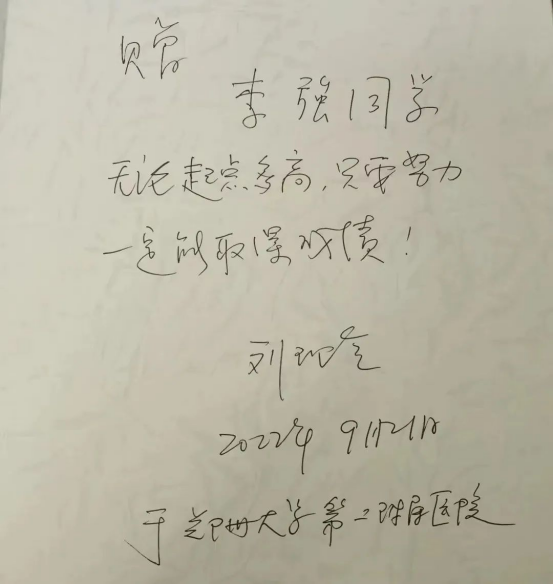 赠
李强同学
无论起点多高，只要努力
一定能取得成绩！
刘
2022年9月21日
于兰州大学第二附属医院